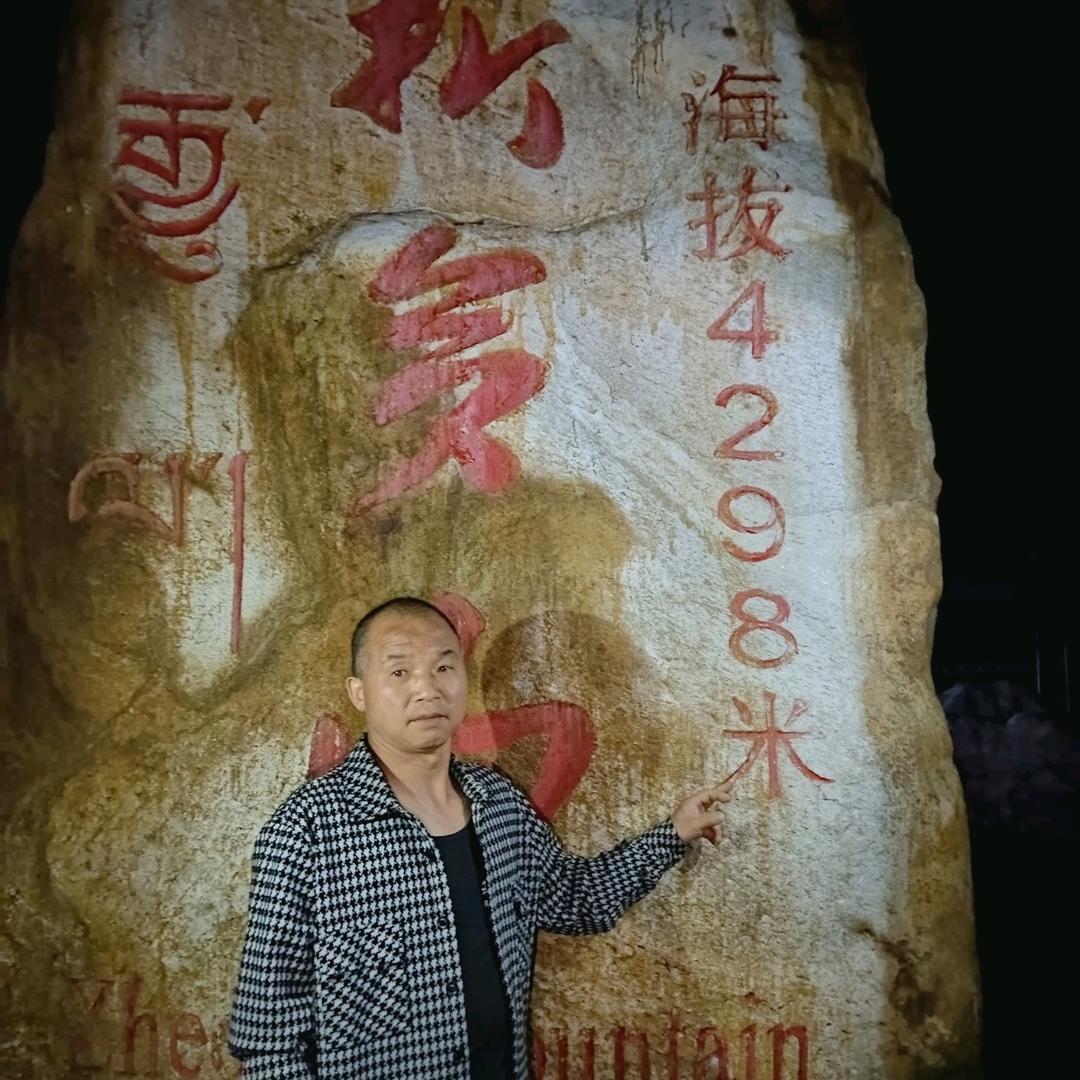 海拔4298米
折多山
ལ།
Zhe ountain